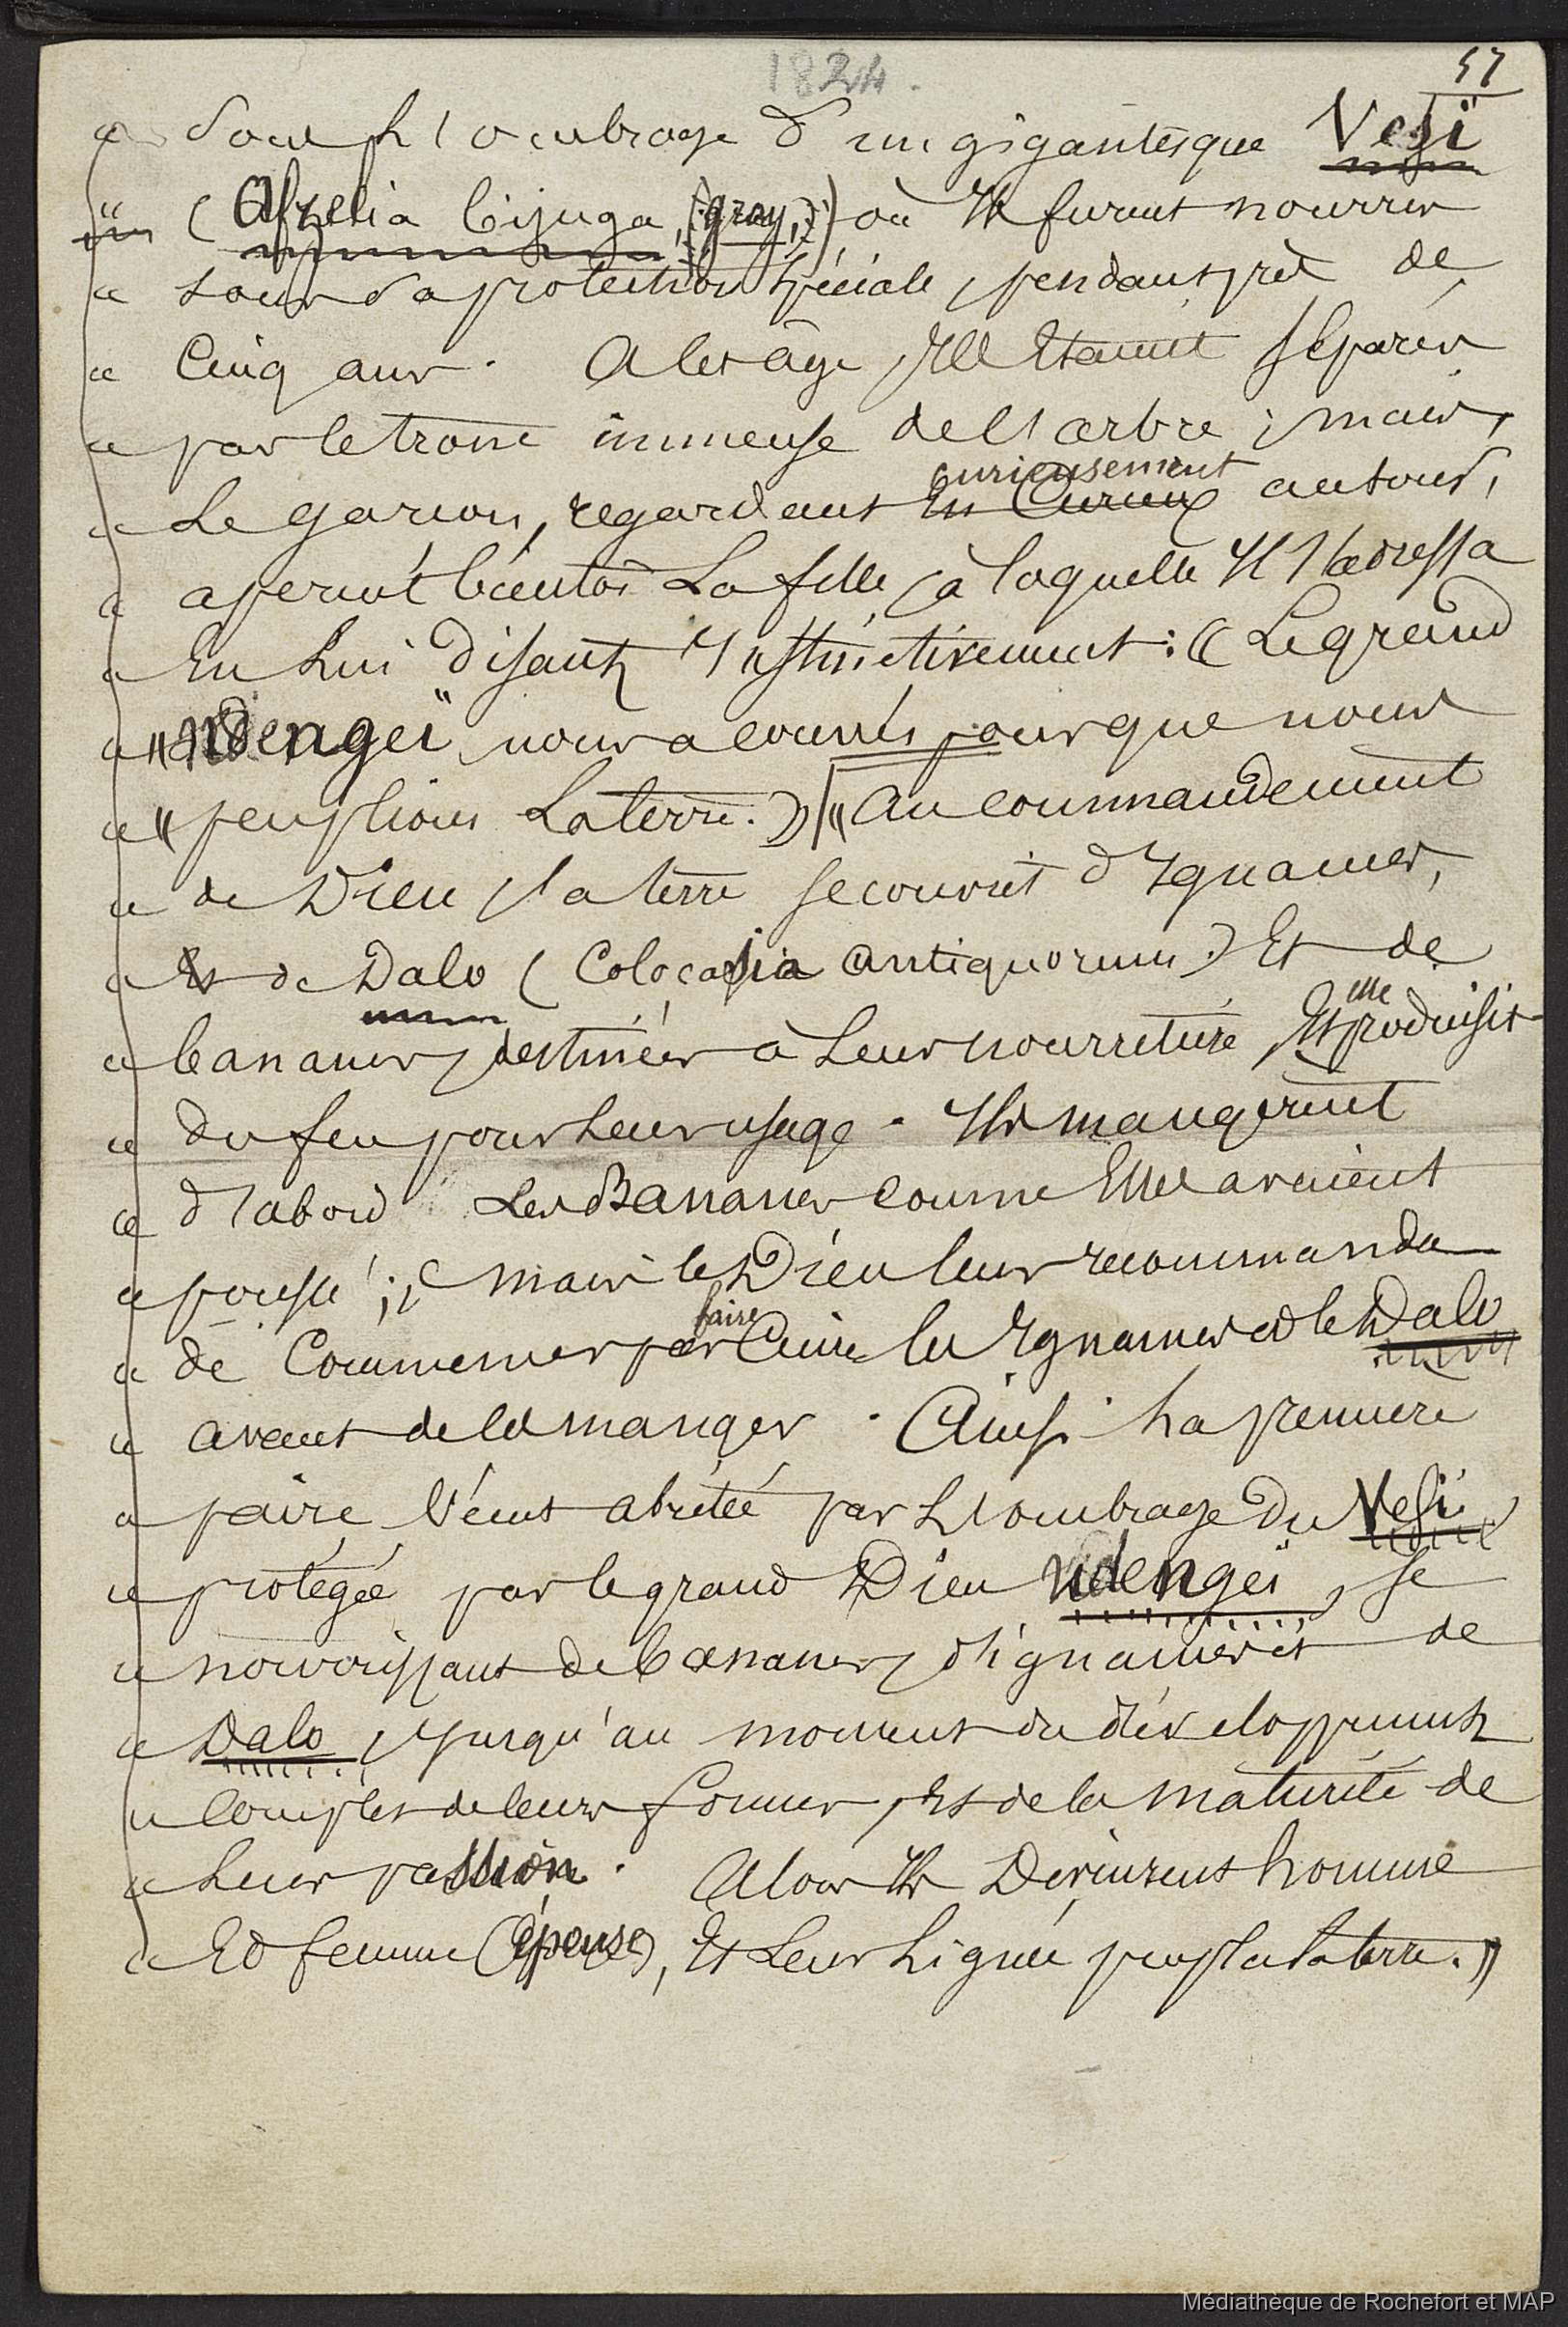 1824.
57
« Sous l'ombrage d'un gigantesque Vesi
« (Afzelia bijuga, (gray,)) où Ils furent nourris
« sous sa protection spéciale, pendant près de
« Cinq ans. A cet âge, Ils Etaient séparés
« par le tronc immense de l'arbre ; mais,
« Le garçon, regardant En Curieux curieusement autour,
« aperçut bientôt La fille, à laquelle Il s'adressa
« En Lui disant Instinctivement : « Le grand
« « Ndengeï nous a créés pour que nous
« « peuplions La terre. » « Au commandement
« de Dieu, la terre se couvrit d'Ignames,
« Et de Dalo (Colocasia antiquorum.) Et de
« bananes, destinées à Leur nourriture, Et elle produisit
« du feu pour Leur usage. Ils mangèrent
« d'abord Les Bananes comme Elles avaient
« poussé ; mais le Dieu leur recommanda
« de Commencer par faire Cuire les Ignames et le Dalo
« avant de les manger. Ainsi La première
« paire vécut abritée par L'ombrage Du Vesi
« protégée par le grand Dieu Ndengeï, se
« nourrissant de bananes, d'ignames et de
« Dalo, Jusqu'au moment du développement
« Complet de leurs formes, Et de la maturité de
« Leur passion. Alors Ils Devinrent homme
« Et femme (épouse), Et Leur Lignée peupla La terre. »
Médiathèque de Rochefort et MAP